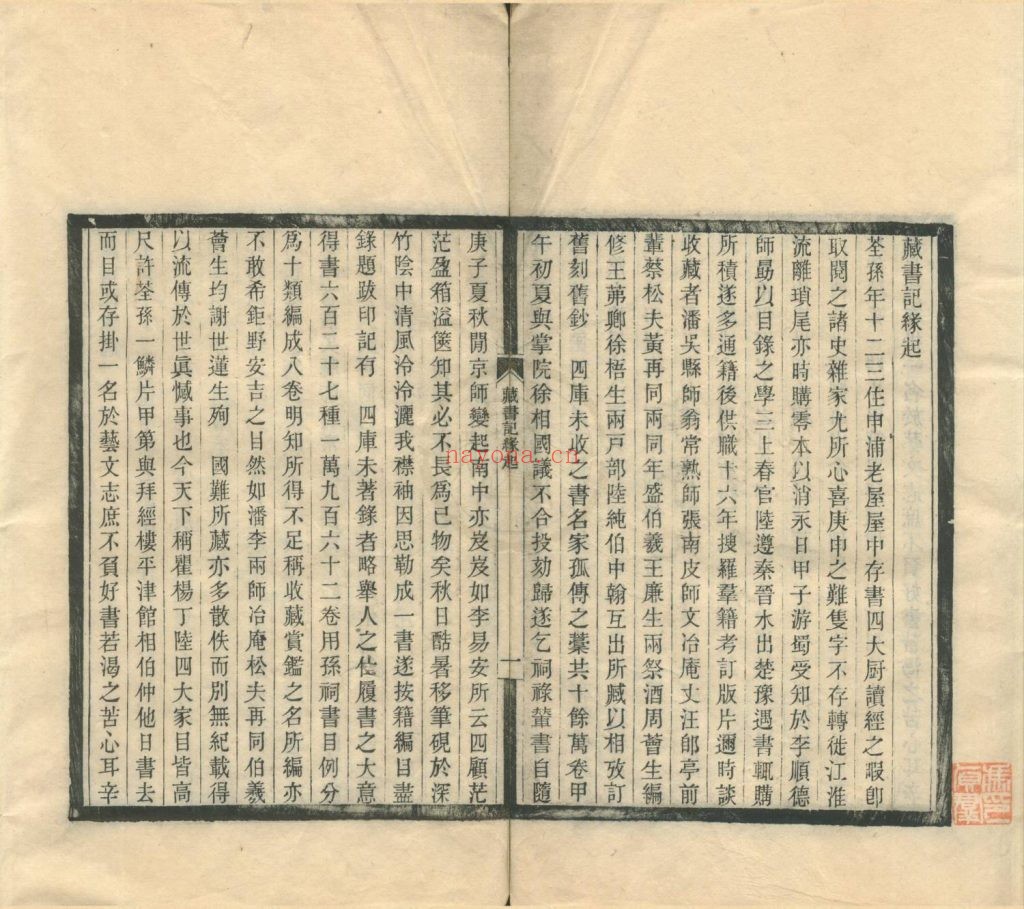 藏書記緣起
荃孫年十二三住申浦老屋屋中存書四大厨讀經之暇卽
取閱之諸史雜家尤所心喜庚申之難隻字不存轉徙江淮
流離瑣尾亦時購零本以消永日甲子游蜀受知於李順德
師勗以目錄之學三上春官陸遵秦晉水出楚豫遇書輒購
所積遂多通籍後供職十六年搜羅羣籍考訂版片邇時談
收藏者潘吳縣師翁常熟師張南皮師文冶庵丈汪郋亭前
輩蔡松夫黃再同兩同年盛伯羲王廉生兩祭酒周薈生編
修王茀卿徐梧生兩戸部陸純伯中翰互出所藏以相攷訂
舊刻舊鈔　四庫未收之書名家孤傳之藁共十餘萬卷甲
午初夏與掌院徐相國議不合投劾歸遂乞祠祿輦書自隨
藏書記緣起
一
庚子夏秋閒京師變起南中亦岌岌如李易安所云四顧茫
茫盈箱溢篋知其必不長爲己物矣秋日酷暑移筆硯於深
竹陰中清風泠泠灑我襟袖因思勒成一書遂按籍編目盡
錄題跋印記有　四庫未著錄者略舉人之仕履書之大意
得書六百二十七種一萬九百六十二卷用孫祠書目例分
爲十類編成八卷明知所得不足稱收藏賞鑑之名所編亦
不敢希鉅野安吉之目然如潘李兩師冶庵松夫再同伯羲
薈生均謝世蓮生殉　國難所藏亦多散佚而別無紀載得
以流傳於世眞憾事也今天下稱瞿楊丁陸四大家目皆高
尺許荃孫一鱗片甲第與拜經樓平津館相伯仲他日書去
而目或存掛一名於藝文志庶不負好書若渴之苦心耳辛
hayona.cn